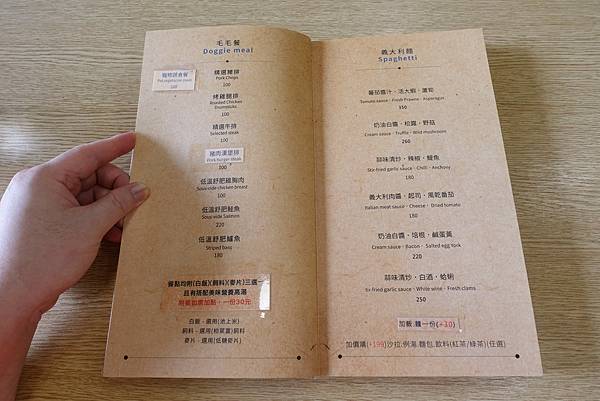 毛毛餐
Doggie meal
寵物蔬食餐
Pet vegetarian meal
100
精選豬排
Pork Chops
100
烤雞腿排
Roasted Chicken
Drumsticks
100
精選牛排
Selected steak
100
豬肉漢堡排
Pork burger steak
100
低溫舒肥雞胸肉
Sous-vide chicken breast
100
低溫舒肥鮭魚
Sous-vide Salmon
220
低溫舒肥鱸魚
Striped bass
180
餐點均附(白飯)(飼料)(麥片)三選一
且有搭配美味營養高湯
附餐如需加點,一份30元
白飯 - 選用(池上米)
飼料 - 選用(柏萊富)飼料
麥片 - 選用(低糖麥片)
義大利麵
Spaghetti
蕃茄醬汁、活大蝦、蘆筍
Tomato sauce、Fresh Prawns、Asparagus
350
奶油白醬、松露、野菇
Cream sauce、Truffle、Wild mushroom
260
蒜味清炒、辣椒、鯷魚
Stir-fried garlic sauce、Chilli、Anchovy
180
義大利肉醬、起司、風乾番茄
Italian meat sauce、Cheese、Dried tomato
180
奶油白醬、培根、鹹蛋黃
Cream sauce、Bacon、Salted egg York
220
蒜味清炒、白酒、蛤蜊
Stir-fried garlic sauce、White wine、Fresh clams
250
加飯.麵一份(+30)
加價購(+199)沙拉.例湯.麵包.飲料(紅茶/綠茶)(任選)